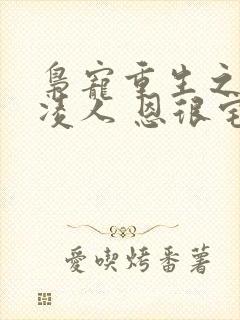 梟寵重生之
凌人 恩很宅
愛喫烤番薯